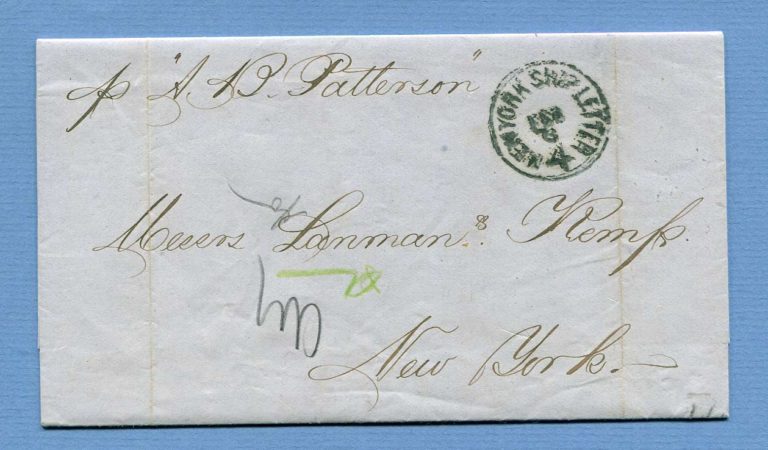 p "A. B. Patterson"
NEW YORK SHIP LETTER
4
Messrs Lanman & Kemp.
New York.